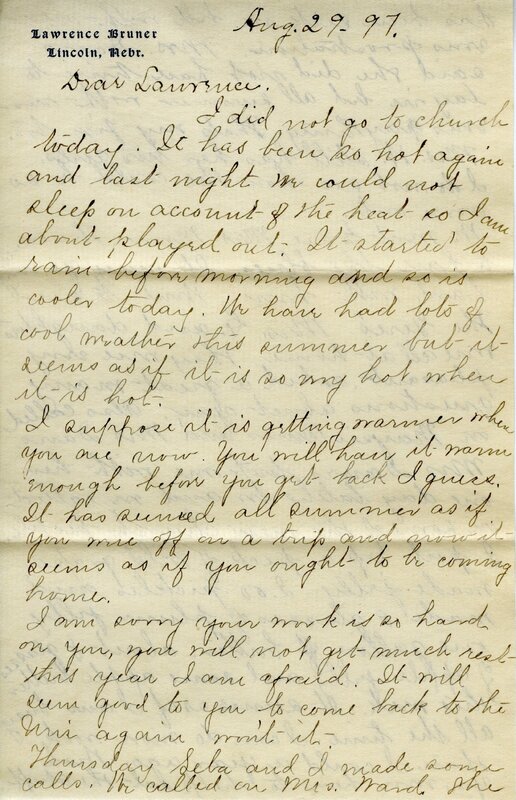 Lawrence Bruner
Lincoln, Nebr.
Aug. 29 - 97.
Dear Lawrence.
I did not go to church
today. It has been so hot again
and last night we could not
sleep on account of the heat so I am
about played out. It started to
rain before morning and so is
cooler today. We have had lots of
cool weather this summer but it
seems as if it is so very hot when
it is hot.
I suppose it is getting warmer where
you are now. You will have it warm
enough before you get back I guess.
It has seemed all summer as if
you were off on a trip and now it
seems as if you ought to be coming
home.
I am sorry your work is so hard
on you, you will not get much rest
this year I am afraid. It will
seem good to you to come back to the
Uni again won't it.
Thursday Seba and I made some
calls. We called on Mrs. Ward, she